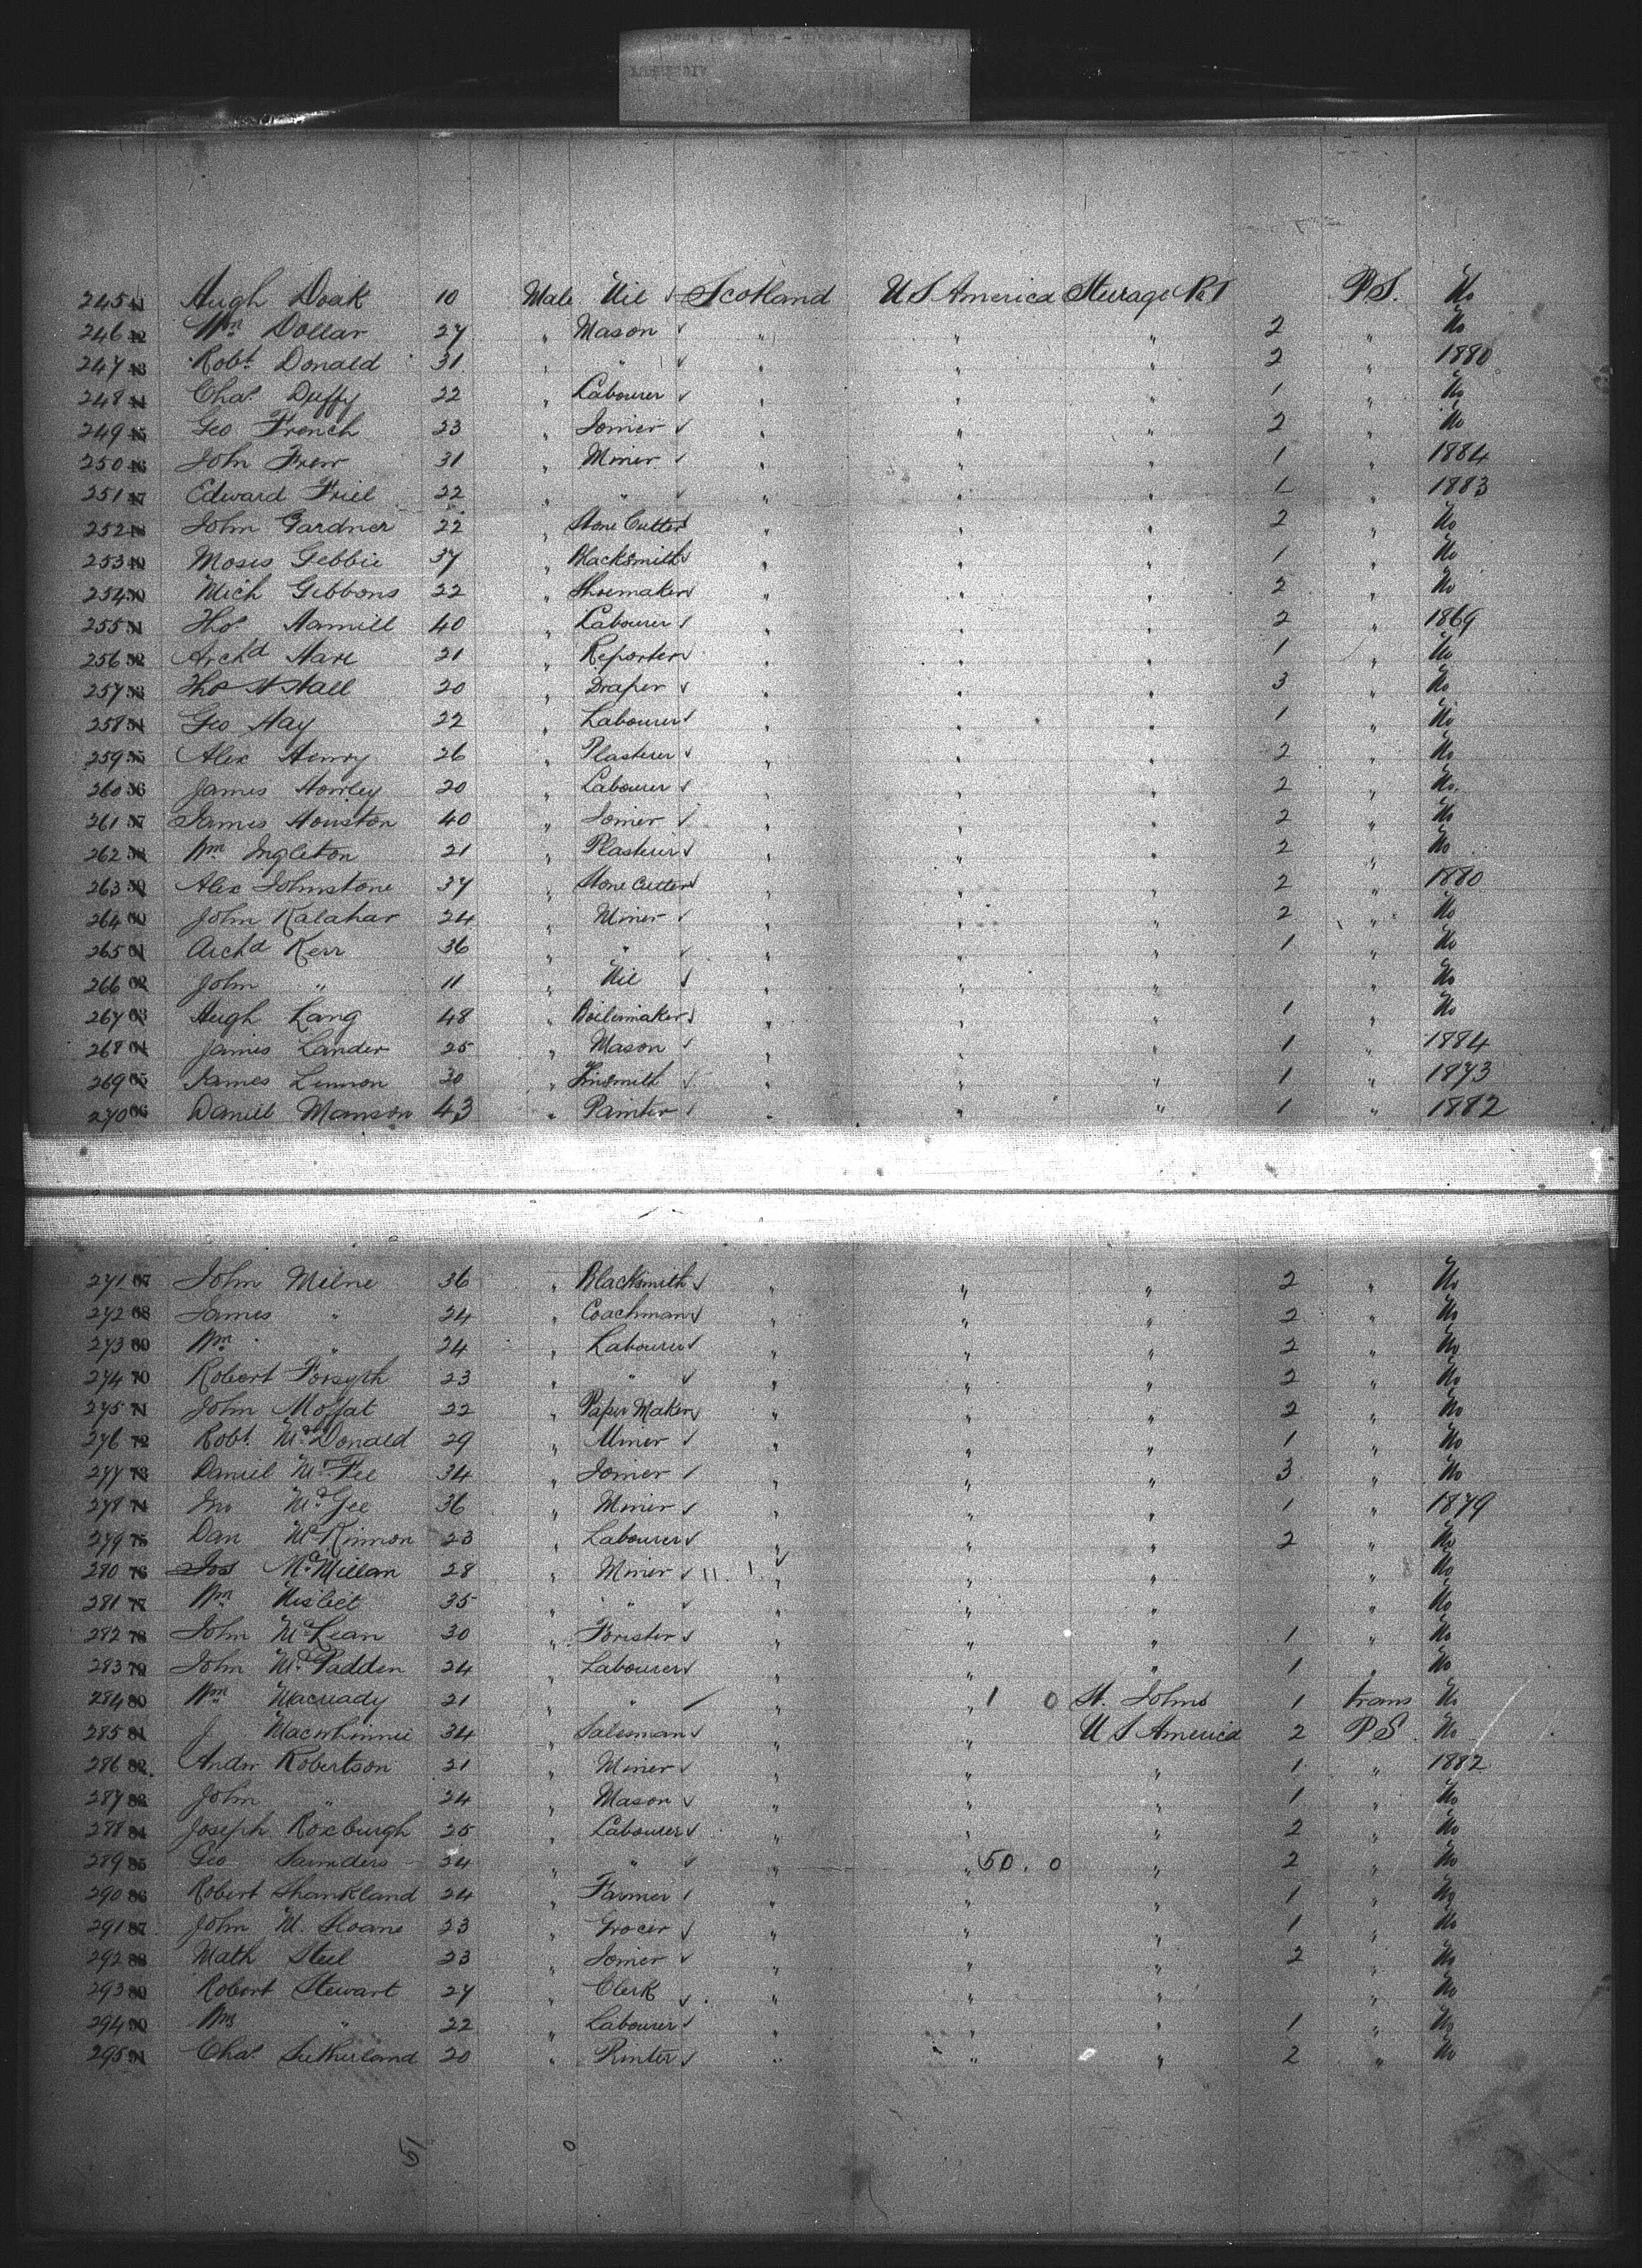 245 41 Hugh Doak 10 Male Nil √ Scotland U S America Steerage P&T P.S. No
246 42 Wm Dollar 27 " Mason √ " " " 2 " No
247 43 Robt Donald 31 " " √ " " " 2 " 1880
248 44 Chas Duffy 22 " Labourer √ " " " 1 " No
249 45 Geo French 23 " Joiner √ " " " 2 " No
250 46 John Frew 31 " Miner √ " " " 1 " 1884
251 47 Edward Friel 22 " " √ " " " 1 " 1883
252 48 John Gardner 22 " Stone Cutter √ " " " 2 " No
253 49 Moses Gebbie 37 " Blacksmith √ " " " 1 " No
254 50 Mich Gibbons 22 " Shoemaker √ " " " 2 " No
255 51 Thos Hamill 40 " Labourer √ " " " 2 " 1869
256 52 Archd Hare 21 " Reporter √ " " " 1 " No
257 53 Thos H Hall 20 " Draper √ " " " 3 " No
258 54 Geo Hay 22 " Labourer √ " " " 1 " No
259 55 Alex Henry 26 " Plasterer √ " " " 2 " No
260 56 James Howley 20 " Labourer √ " " " 2 " No.
261 57 James Houston 40 " Joiner √ " " " 2 " No
262 58 Wm Ingleton 21 " Plasterer √ " " " 2 " No
263 59 Alex Johnstone 37 " Stone Cutter √ " " " 2 " 1880
264 60 John Kalahar 24 " Miner √ " " " 2 " No
265 61 Archd Kerr 36 " " √ " " " 1 " No
266 62 John " 11 " Nil √ " " " " No
267 63 Hugh Lang 48 " Boilermaker √ " " " 1 " No
268 64 James Lander 25 " Mason √ " " " 1 " 1884
269 65 James Lennon 30 " Tinsmith √ " " " 1 " 1873
270 66 Daniel Manson 43 " Painter √ " " " 1 " 1882
271 67 John Milne 36 " Blacksmith √ " " " 2 " No
272 68 James " 24 " Coachman √ " " " 2 " No
273 69 Wm " 24 " Labourer √ " " " 2 " No
274 70 Robert Forsyth 23 " " √ " " " 2 " No
275 71 John Moffat 22 " Paper Maker √ " " " 2 " No
276 72 Robt McDonald 29 " Miner √ " " " 1 " No
277 73 Daniel McFee 34 " Joiner √ " " " 3 " No
278 74 Jno McGee 36 " Miner √ " " " 1 " 1879
279 75 Dan McKinnon 23 " Labourer √ " " " 2 " No
280 76 Jos McMillan 28 " Miner √ " " " " No
281 77 Wm Nisbet 35 " " √ " " " " No
282 78 John McLean 30 " Forister √ " " " 1 " No
283 79 John McPadden 24 " Labourer √ " " " 1 " No
284 80 Wm Macready 21 " " √ " " 1 0 St. Johns 1 trans No
285 81 J Macwhinnie 34 " Salesman √ " " U S America 2 P S. No
286 82 Andw Robertson 21 " Miner √ " " " 1 " 1882
287 83 John " 24 " Mason √ " " " 1 " No
288 84 Joseph Roxburgh 25 " Labourer √ " " " 2 " No
289 85 Geo Saunders 24 " " √ " " 50. 0 " 2 " No
290 86 Robert Shankland 24 " Farmer √ " " " 1 " No
291 87 John M. Sloane 23 " Grocer √ " " " 1 " No
292 88 Math Steel 23 " Joiner √ " " " 2 " No
293 89 Robert Stewart 27 " Clerk √ " " " " No
294 90 Wm " 22 " Labourer √ " " " 1 " No
295 91 Chas Sutherland 20 " Printer √ " " " 2 " No